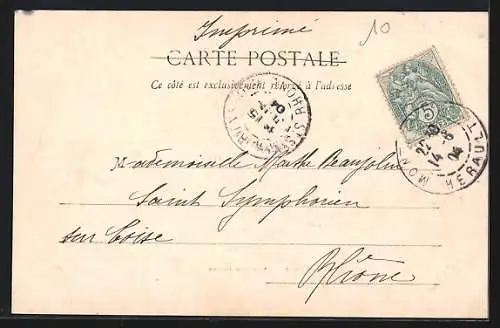 Imprimé
10
CARTE POSTALE
Ce côté est exclusivement réservé à l'adresse
5
14 -8
04
HERAULT
MON
RHONE
15
04
Mademoiselle Marthe Beaujolin
Saint Symphorien
sur Coise
Rhône